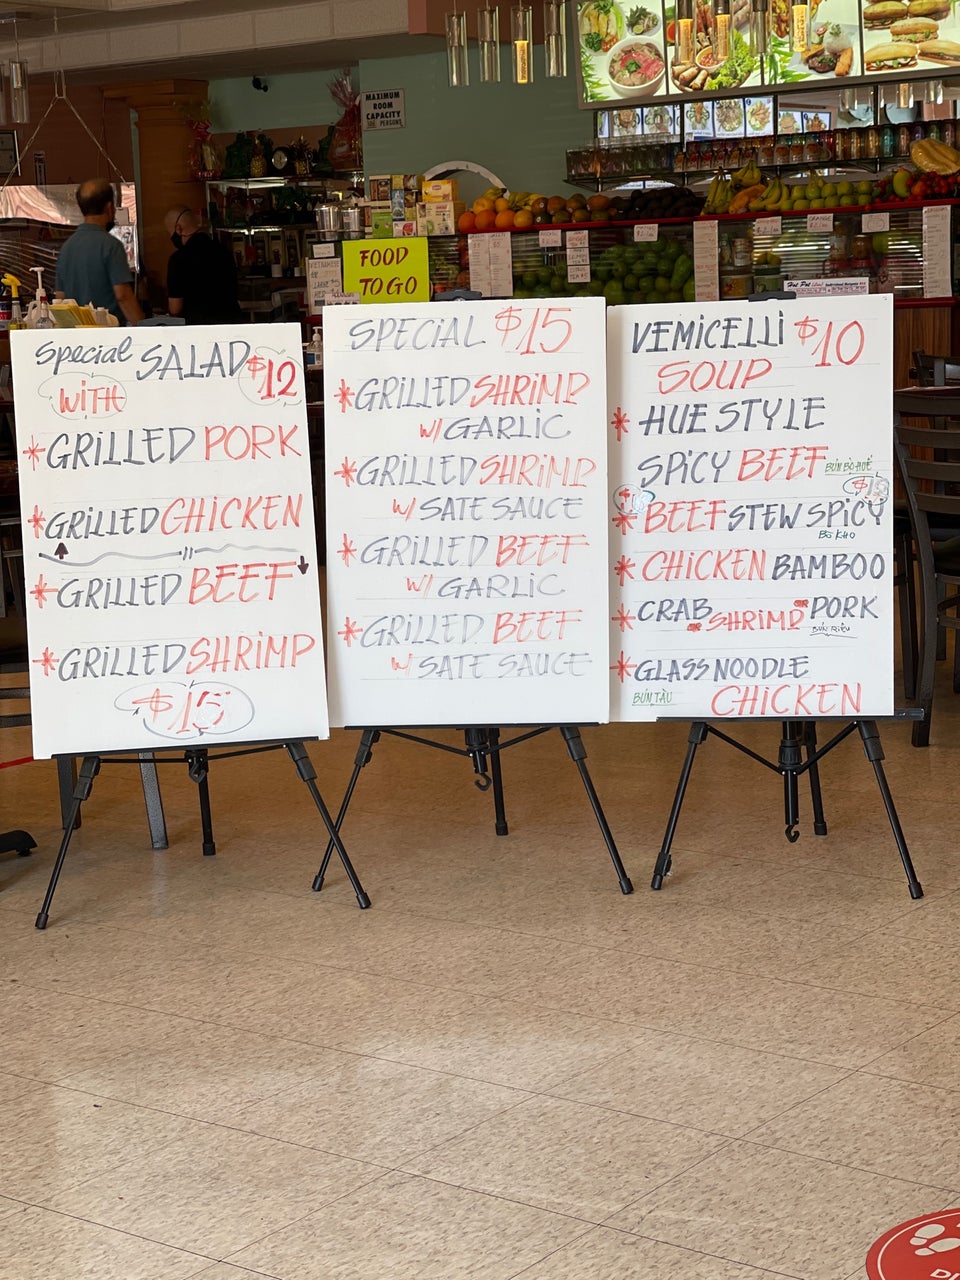 MAXIMUM
ROOM
CAPACITY
PERSONS
FOOD
TO GO
Special SALAD $12
WITH
* GRILLED PORK
* GRILLED CHICKEN
* GRILLED BEEF
* GRILLED SHRIMP
$15
SPECIAL $15
* GRILLED SHRIMP
W/ GARLIC
* GRILLED SHRIMP
W/ SATE SAUCE
* GRILLED BEEF
W/ GARLIC
* GRILLED BEEF
W/ SATE SAUCE
VEMICELLI $10
SOUP
* HUE STYLE
SPICY BEEF BÚN BÒ HUẾ
* BEEF STEW SPICY
BÒ KHO
* CHICKEN BAMBOO
* CRAB SHRIMP PORK
BÚN RIÊU
* GLASS NOODLE
BÚN TÀU CHICKEN